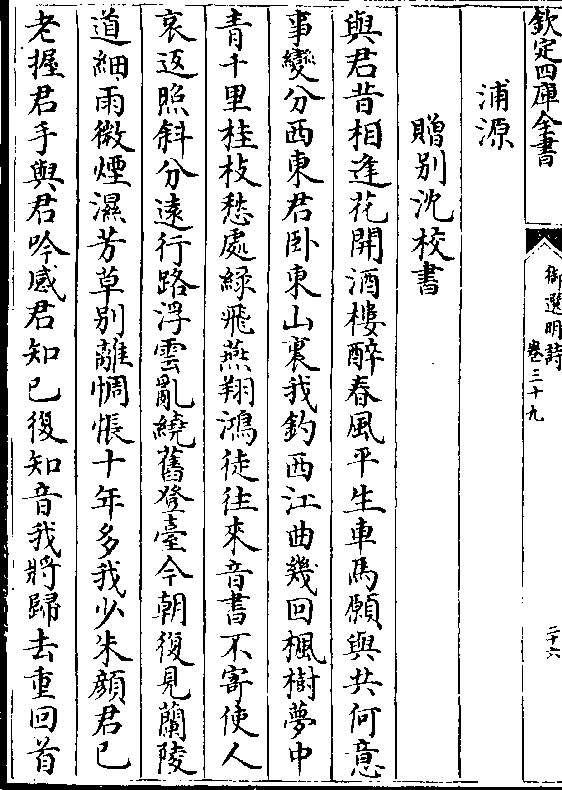 欽定四庫全書
御選明詩
卷三十九
二十六
浦源
贈别沈校書
與君昔相逢花開酒樓醉春風平生車馬願與共何意
事變分西東君卧東山裏我釣西江曲幾回楓樹夢中
青千里桂枝愁處緑飛燕翔鴻徒往來音書不寄使人
哀返照斜分逺行路浮雲亂繞舊登臺今朝復見蘭陵
道細雨微煙濕芳草别離惆悵十年多我少朱顔君已
老握君手與君吟感君知已復知音我將歸去重回首